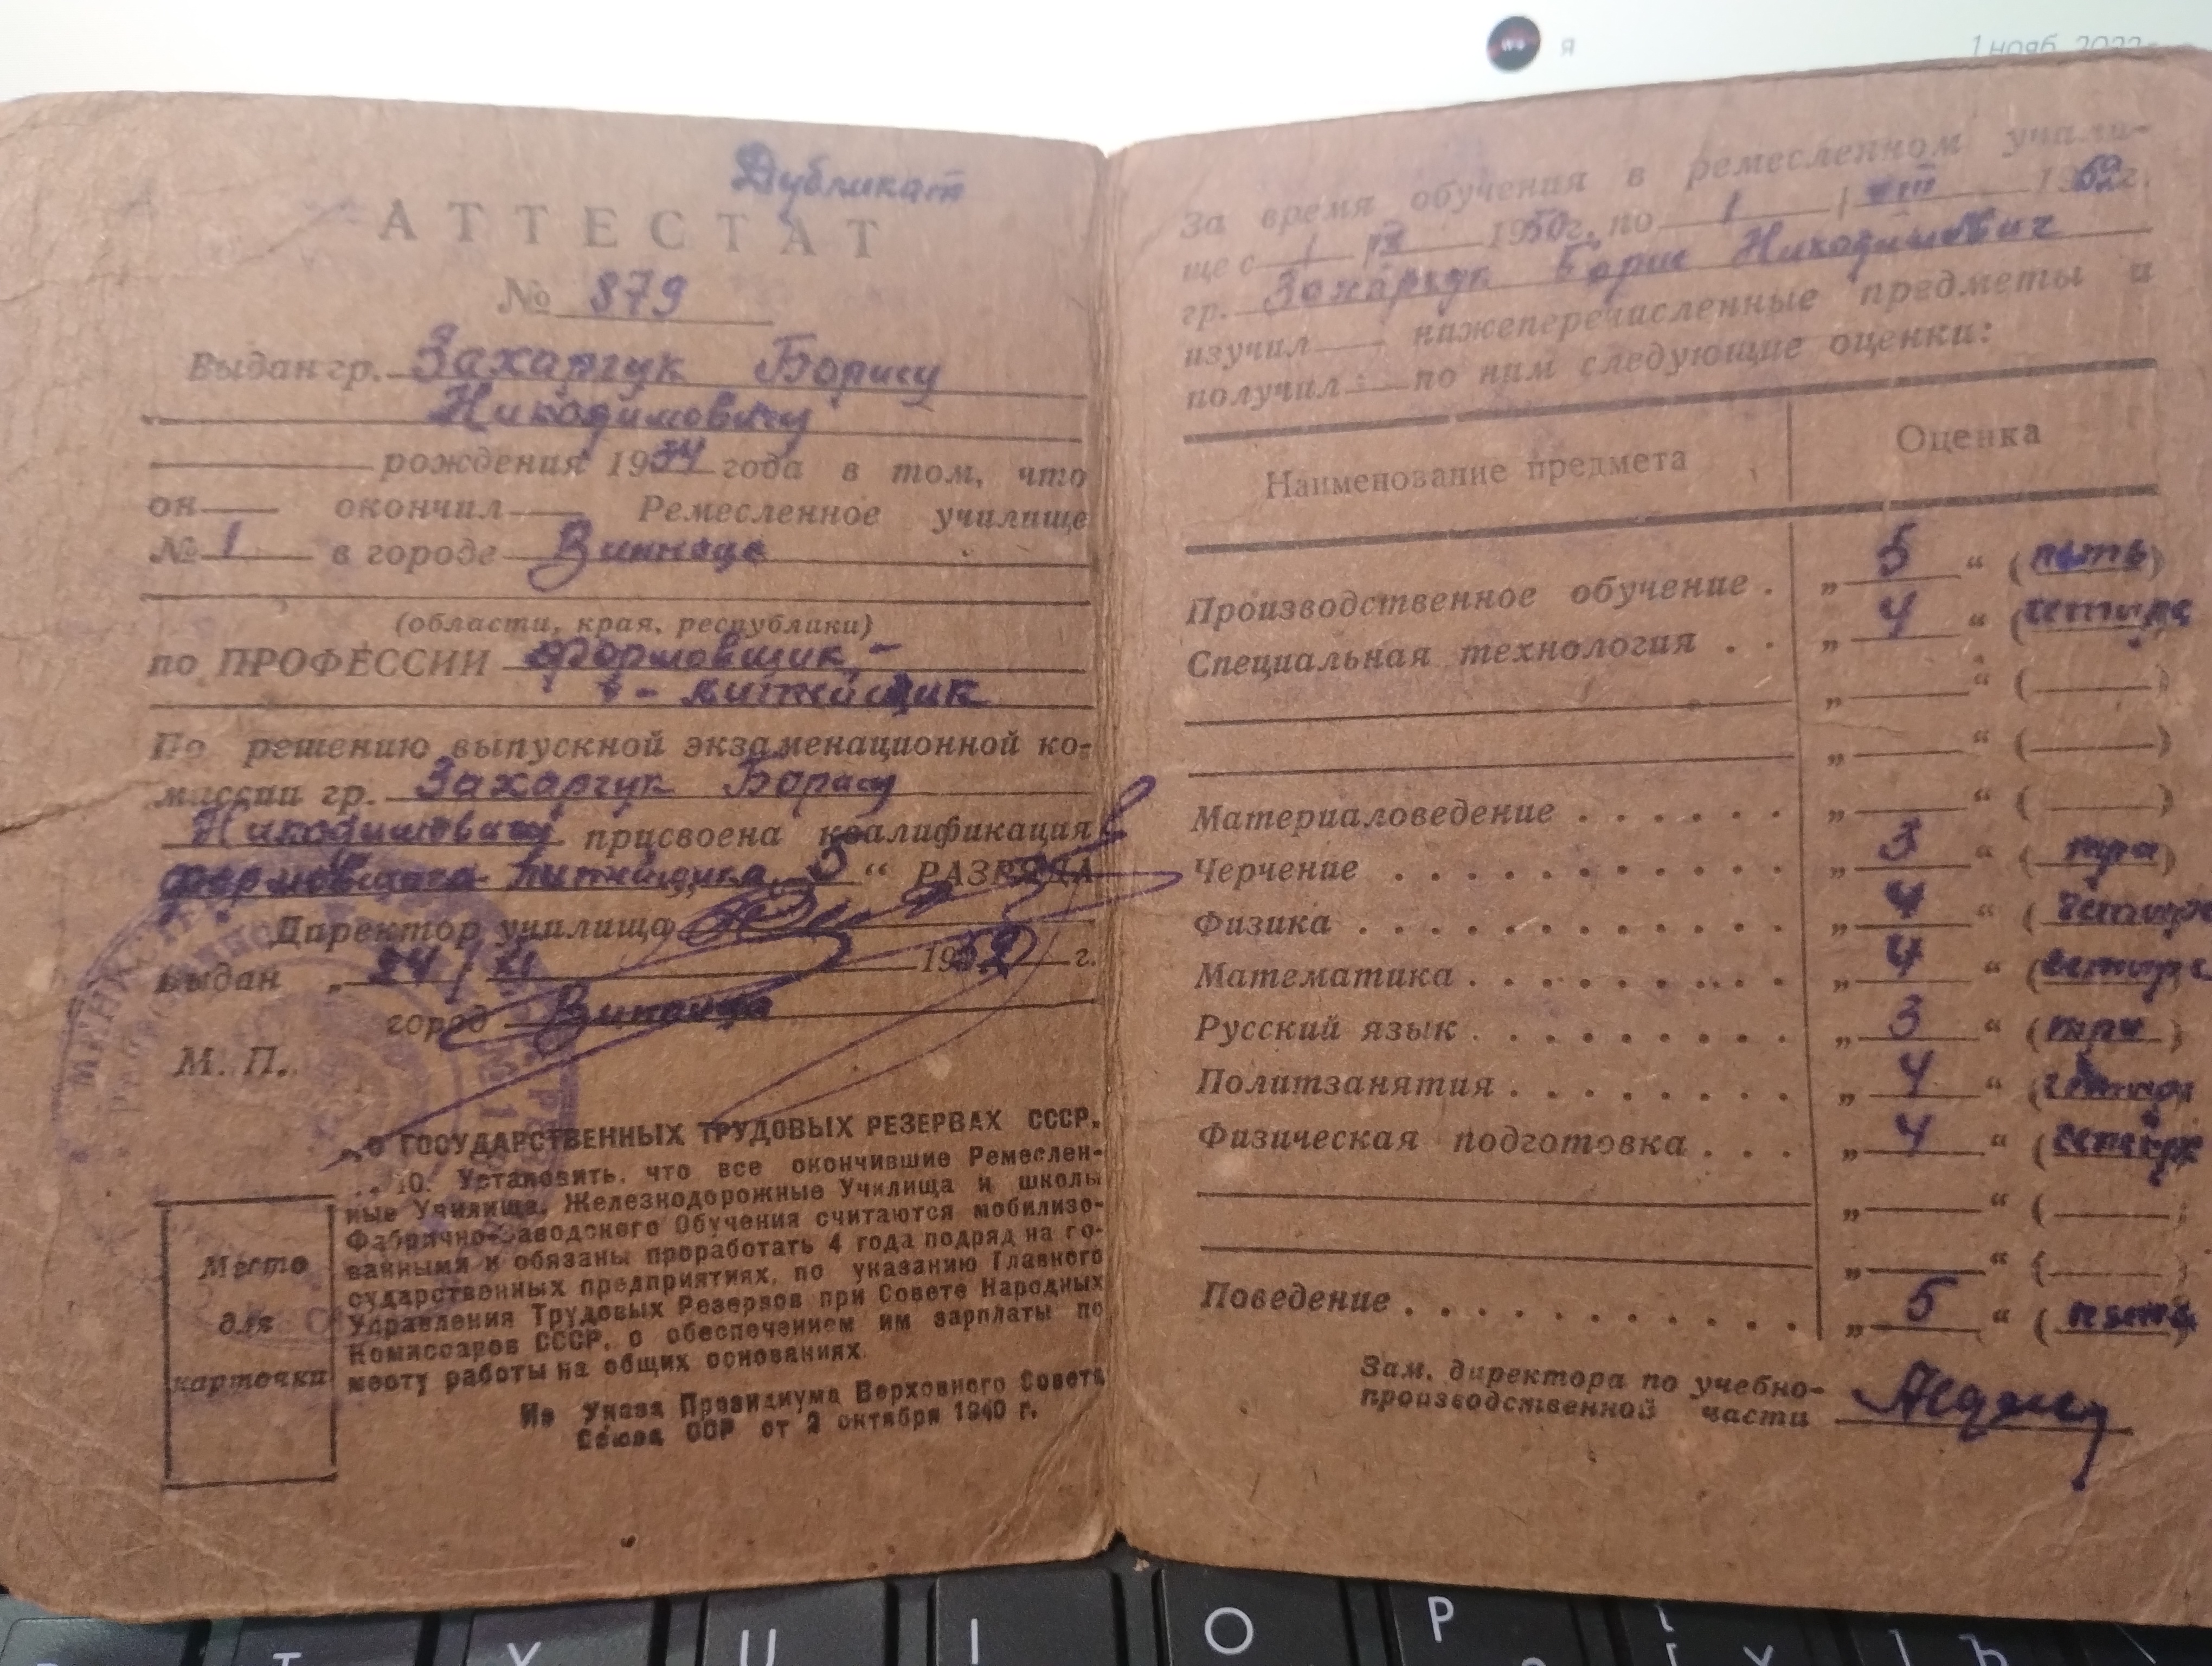 я
1 нояб. 2022
Дубликат
АТТЕСТАТ
№ 879
Выдан гр. Захарчук Борису
Никодимовичу
рождения 1934 года в том, что
он окончил Ремесленное училище
№ 1 в городе Виннице
(области, края, республики)
по ПРОФЕССИИ формовщик-
- литейщик
По решению выпускной экзаменационной ко-
миссии гр. Захарчук Борису
Никодимовичу присвоена квалификация
формовщика литейщика „ 5 “ РАЗРЯДА
Директор училища
Выдан „ 24 / 1952 г.
город Винница
М. П.
О ГОСУДАРСТВЕННЫХ ТРУДОВЫХ РЕЗЕРВАХ СССР.
„10. Установить, что все окончившие Ремеслен-
ные Училища, Железнодорожные Училища и школы
Фабрично-Заводского Обучения считаются мобилизо-
ванными и обязаны проработать 4 года подряд на го-
сударственных предприятиях, по указанию Главного
Управления Трудовых Резервов при Совете Народных
Комиссаров СССР, с обеспечением им зарплаты по
месту работы на общих основаниях.
Из Указа Президиума Верховного Совета
Союза ССР от 2 октября 1940 г.
Место
для
карточки
За время обучения в ремесленном учили-
ще с 1 IX 1950 г. по 1 / VIII 1952 г.
гр. Захарчук Борис Никодимович
изучил нижеперечисленные предметы и
получил по ним следующие оценки:
Наименование предмета Оценка
Производственное обучение . „ 5 “ (пять)
Специальная технология . . „ 4 “ (четыре
„ “ ( )
„ “ ( )
Материаловедение . . . . . . „ “ ( )
Черчение . . . . . . . . . . . „ 3 “ (три)
Физика . . . . . . . . . . . . „ 4 “ (четыре
Математика . . . . . . . . . „ 4 “ (четыре
Русский язык . . . . . . . . . „ 3 “ (три)
Политзанятия . . . . . . . . „ 4 “ (четыре
Физическая подготовка . . . „ 4 “ (четыре
„ “ ( )
„ “ ( )
Поведение . . . . . . . . . . . „ 5 “ (пять)
Зам. директора по учебно-
производственной части
O P U I